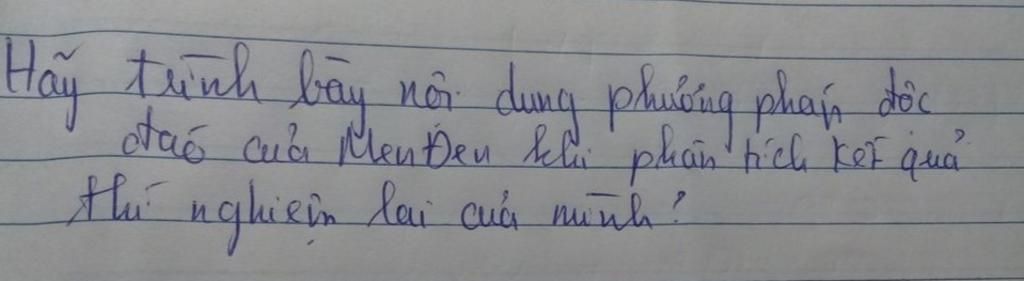 Hãy trình bày nội dung phương pháp độc
đáo của MenĐen khi phân tích kết quả
thí nghiệm lai của mình?